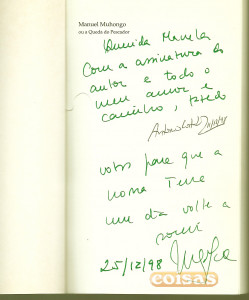 Manuel Muhongo
ou a Queda do Pescador
Querida Manela
Com a assinatura do
autor e todo o
meu amor e
carinho,
votos para que a
nossa Terra
um dia volte a
sorrir
25/12/98
coisas